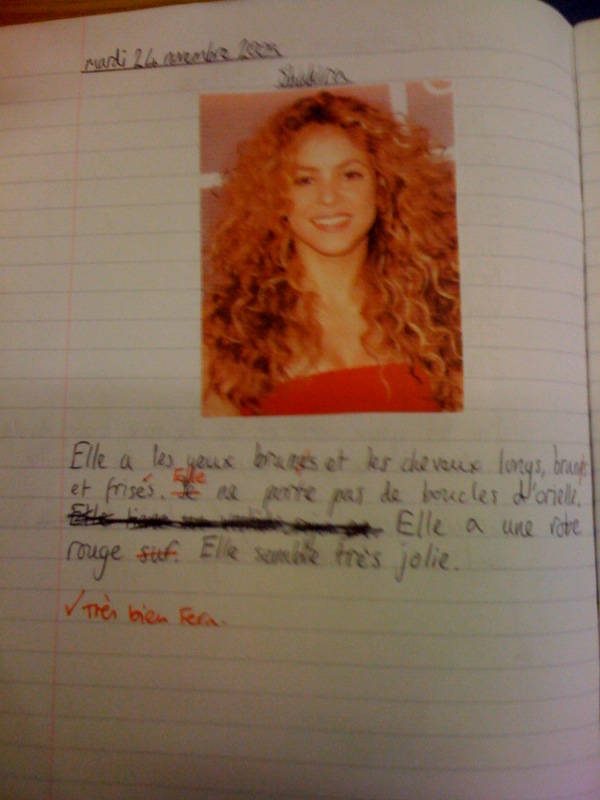 mardi 24 novembre 2009
Shakira
Elle a les yeux bruns et les cheveux longs, bruns
et frisés. Elle ne porte pas de boucles d'orielle.
Elle a une robe
rouge sur. Elle semble très jolie.
✓ Très bien Fern.